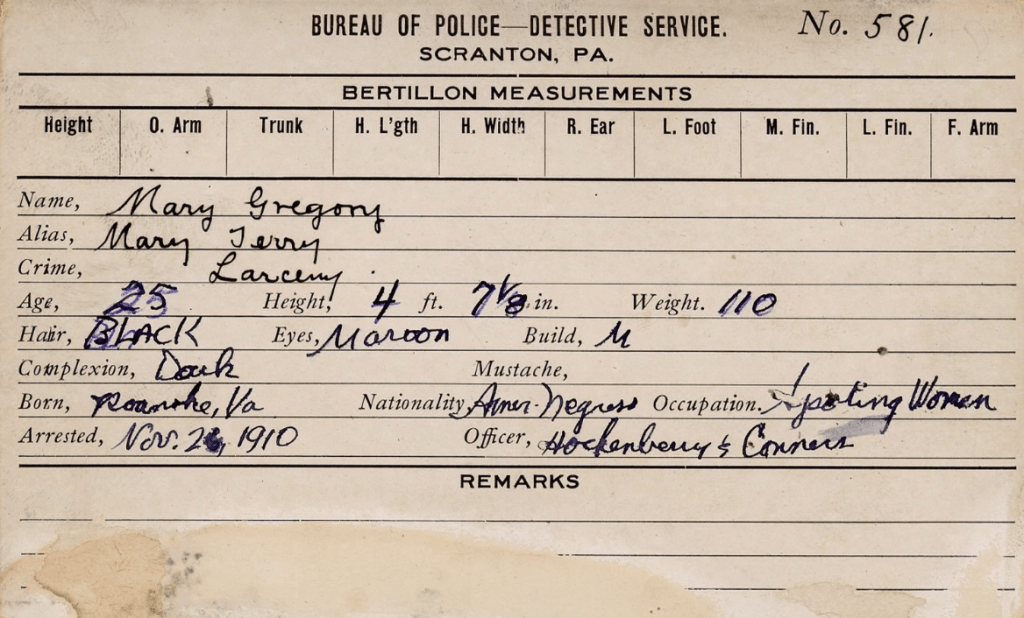 BUREAU OF POLICE—DETECTIVE SERVICE. No. 581.
SCRANTON, PA.
BERTILLON MEASUREMENTS
Height O. Arm Trunk H. L'gth H. Width R. Ear L. Foot M. Fin. L. Fin. F. Arm
Name, Mary Gregory
Alias, Mary Terry
Crime, Larceny.
Age, 25 Height, 4 ft. 7 1/8 in. Weight. 110
Hair, BLACK Eyes, Maroon Build, M
Complexion, Dark Mustache,
Born, Roanoke, Va Nationality, Amer-Negress Occupation. Sporting Women
Arrested, Nov. 26, 1910 Officer, Hockenberry & Conners
REMARKS